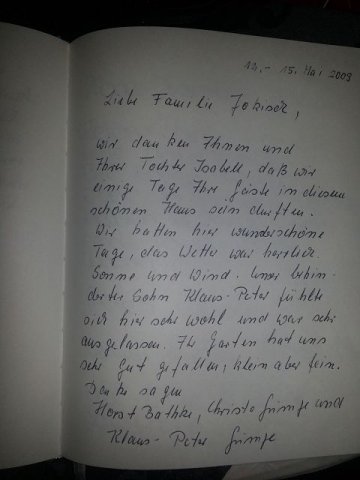 12.- 15. Mai 2009
Liebe Familie Jokisch,
wir danken Ihnen und
Ihrer Tochter Isabell, daß wir
einige Tage Ihre Gäste in diesem
schönen Haus sein durften.
Wir hatten hier wunderschöne
Tage, das Wetter war herrlich.
Sonne und Wind. Unser behin-
derter Sohn Klaus-Peter fühlte
sich hier sehr wohl und war sehr
ausgelassen. Ihr Garten hat uns
sehr gut gefallen, klein aber fein.
Danke sagen
Horst Bathke, Christa und
Klaus-Peter